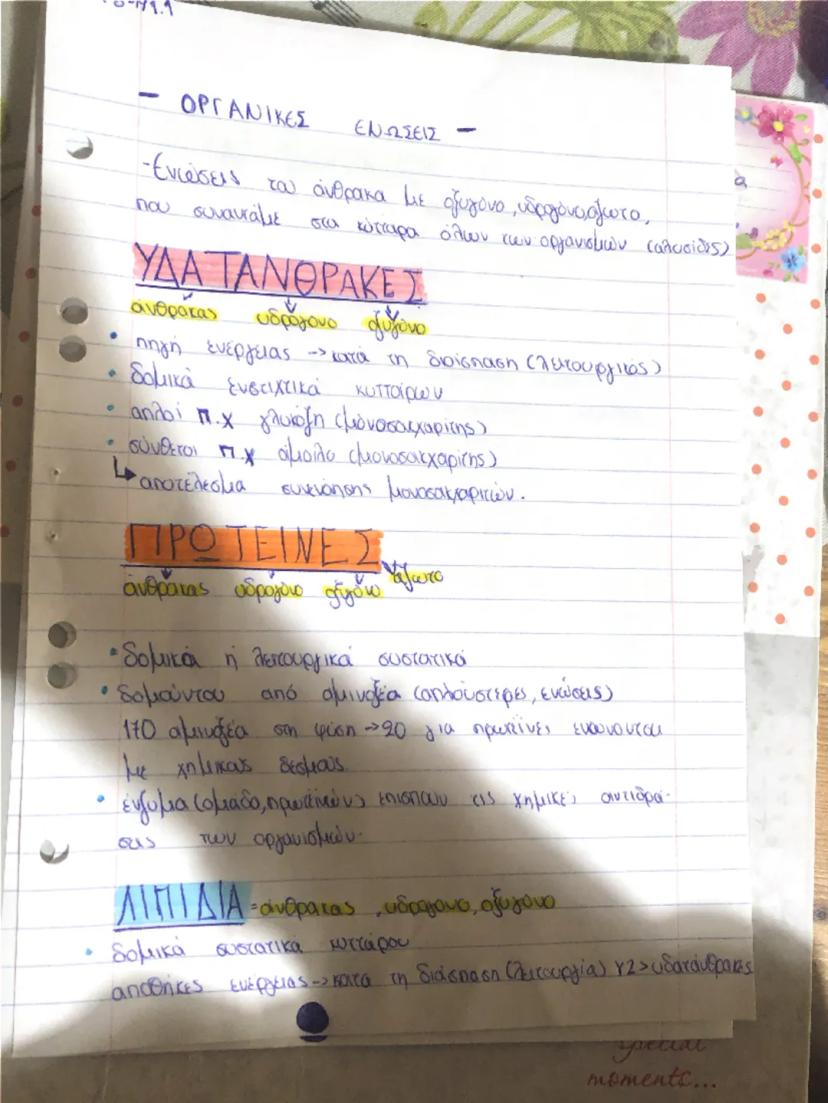 - ΟΡΓΑΝΙΚΕΣ ΕΝΩΣΕΙΣ -
-Ενώσεις του άνθρακα με οξυγόνο, υδρογόνο, άζωτο,
που συναντάμε στα κύτταρα όλων των οργανισμών (αλυσίδες)
ΥΔΑΤΑΝΘΡΑΚΕΣ
άνθρακας υδρογόνο οξυγόνο
• πηγή ενέργειας -> κατά τη διάσπαση (λειτουργικός)
• δομικά κυττάρων
• απλοί π.χ γλυκόζη (μονοσακχαρίτης)
• σύνθετοι π.χ άμυλο (μονοσακχαρίτης)
↳ αποτέλεσμα συνένωσης μονοσακχαριτών.
ΠΡΩΤΕΙΝΕΣ
άνθρακας υδρογόνο οξυγόνο άζωτο
• δομικά ή λειτουργικά συστατικά
• δομούνται από αμινοξέα (απλούστερες, ενώσεις)
170 αμινοξέα στη φύση -> 20 για πρωτεΐνες ενώνονται
με χημικούς δεσμούς
• ένζυμα (ομάδα, πρωτεϊνών) τις χημικές αντιδρά-
σεις των οργανισμών.
ΛΙΠΙΔΙΑ = άνθρακας, υδρογόνο, οξυγόνο
• δομικά συστατικά κυττάρου
αποθήκες ενέργειας -> κατά τη διάσπαση (λειτουργία) x2 > υδατάνθρακες
special
moments...